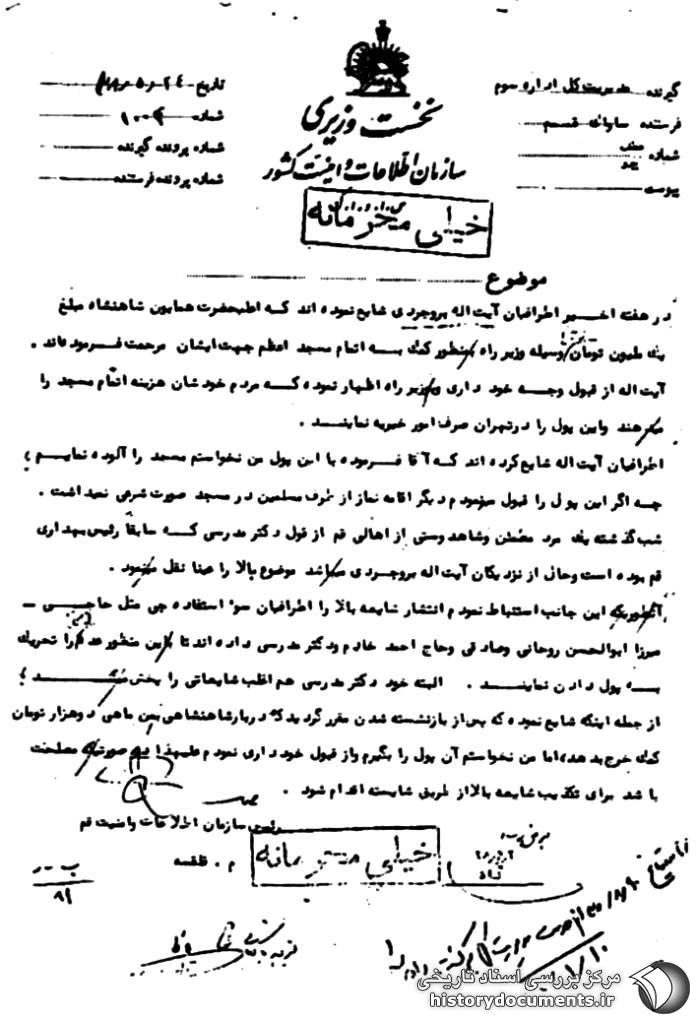 گیرنده مدیریت کل اداره سوم
فرستنده ساواک قم
شماره
پیوست
نخست وزیری
سازمان اطلاعات و امنیت کشور
تاریخ
شماره
شماره پرونده گیرنده
شماره پرونده فرستنده
خیلی محرمانه
موضوع
در هفته اخیر اطرافیان آیت اله بروجردی شایع نموده اند که اعلیحضرت همایون شاهنشاه مبلغ
یک ملیون تومان وسیله وزیر راه بمنظور کمک به اتمام مسجد اعظم جهت ایشان مرحمت فرموده اند .
آیت اله از قبول وجه خود داری و بوزیر راه اظهار نموده که مردم خودشان هزینه اتمام مسجد را
میدهند واین پول را درتهران صرف امور خیریه نمایند .
اطرافیان آیت اله شایع کرده اند که آقا فرموده با این پول من نخواستم مسجد را آلوده نمایم ؛
چه اگر این پول را قبول مینمودم دیگر اقامه نماز از طرف مسلمین در مسجد صورت شرعی نمیداشت .
شب گذشته یک مرد مطمئن وشاهد وستی از اهالی قم از قول دکتر مدرسی که سابقاً رئیس بهداری
قم بوده است وحال از نزدیکان آیت اله بروجردی میباشد موضوع بالا را عینا نقل مینمود .
آنطوریکه این جانب استنباط نمودم انتشار شایعه بالا را اطرافیان سوء استفاده جی مثل حاجی -
میرزا ابوالحسن روحانی وصادقی وحاج احمد خادم ودکتر مدرسی داده اند تا باین منظور عده را تحریک
به پول دادن نمایند . البته خود دکتر مدرسی هم اغلب شایعاتی را پخش میکند ؛
از جمله اینکه شایع نموده که پس از بازنشسته شدن مقرر گردید که دربارشاهنشاهی بمن ماهی دوهزار تومان
کمک خرج بدهد، اما من نخواستم آن پول را بگیرم واز قبول خود داری نمودم علیهذا در صورتیکه مصلحت
باشد برای تکذیب شایعه بالا از طریق شایسته اقدام شود .
رئیس سازمان اطلاعات وامنیت قم
خیلی محرمانه
مرکز بررسی اسناد تاریخی
historydocuments.ir